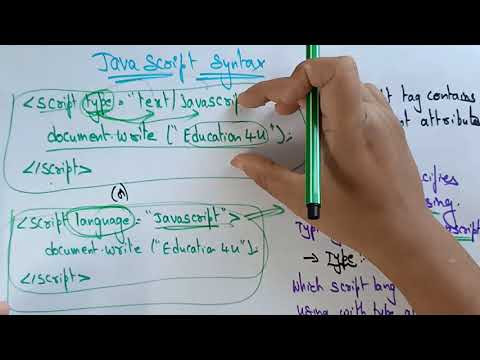 Java Script Syntax
<script type = "text/Javascrip
document.write ("Education 4u");
</script>
(or)
<script language = "Javascript">
document.write ("Education 4u");
</script>
tag contains
attribute
specifies
using.
script
→ Type :-
which script lang
using with type a